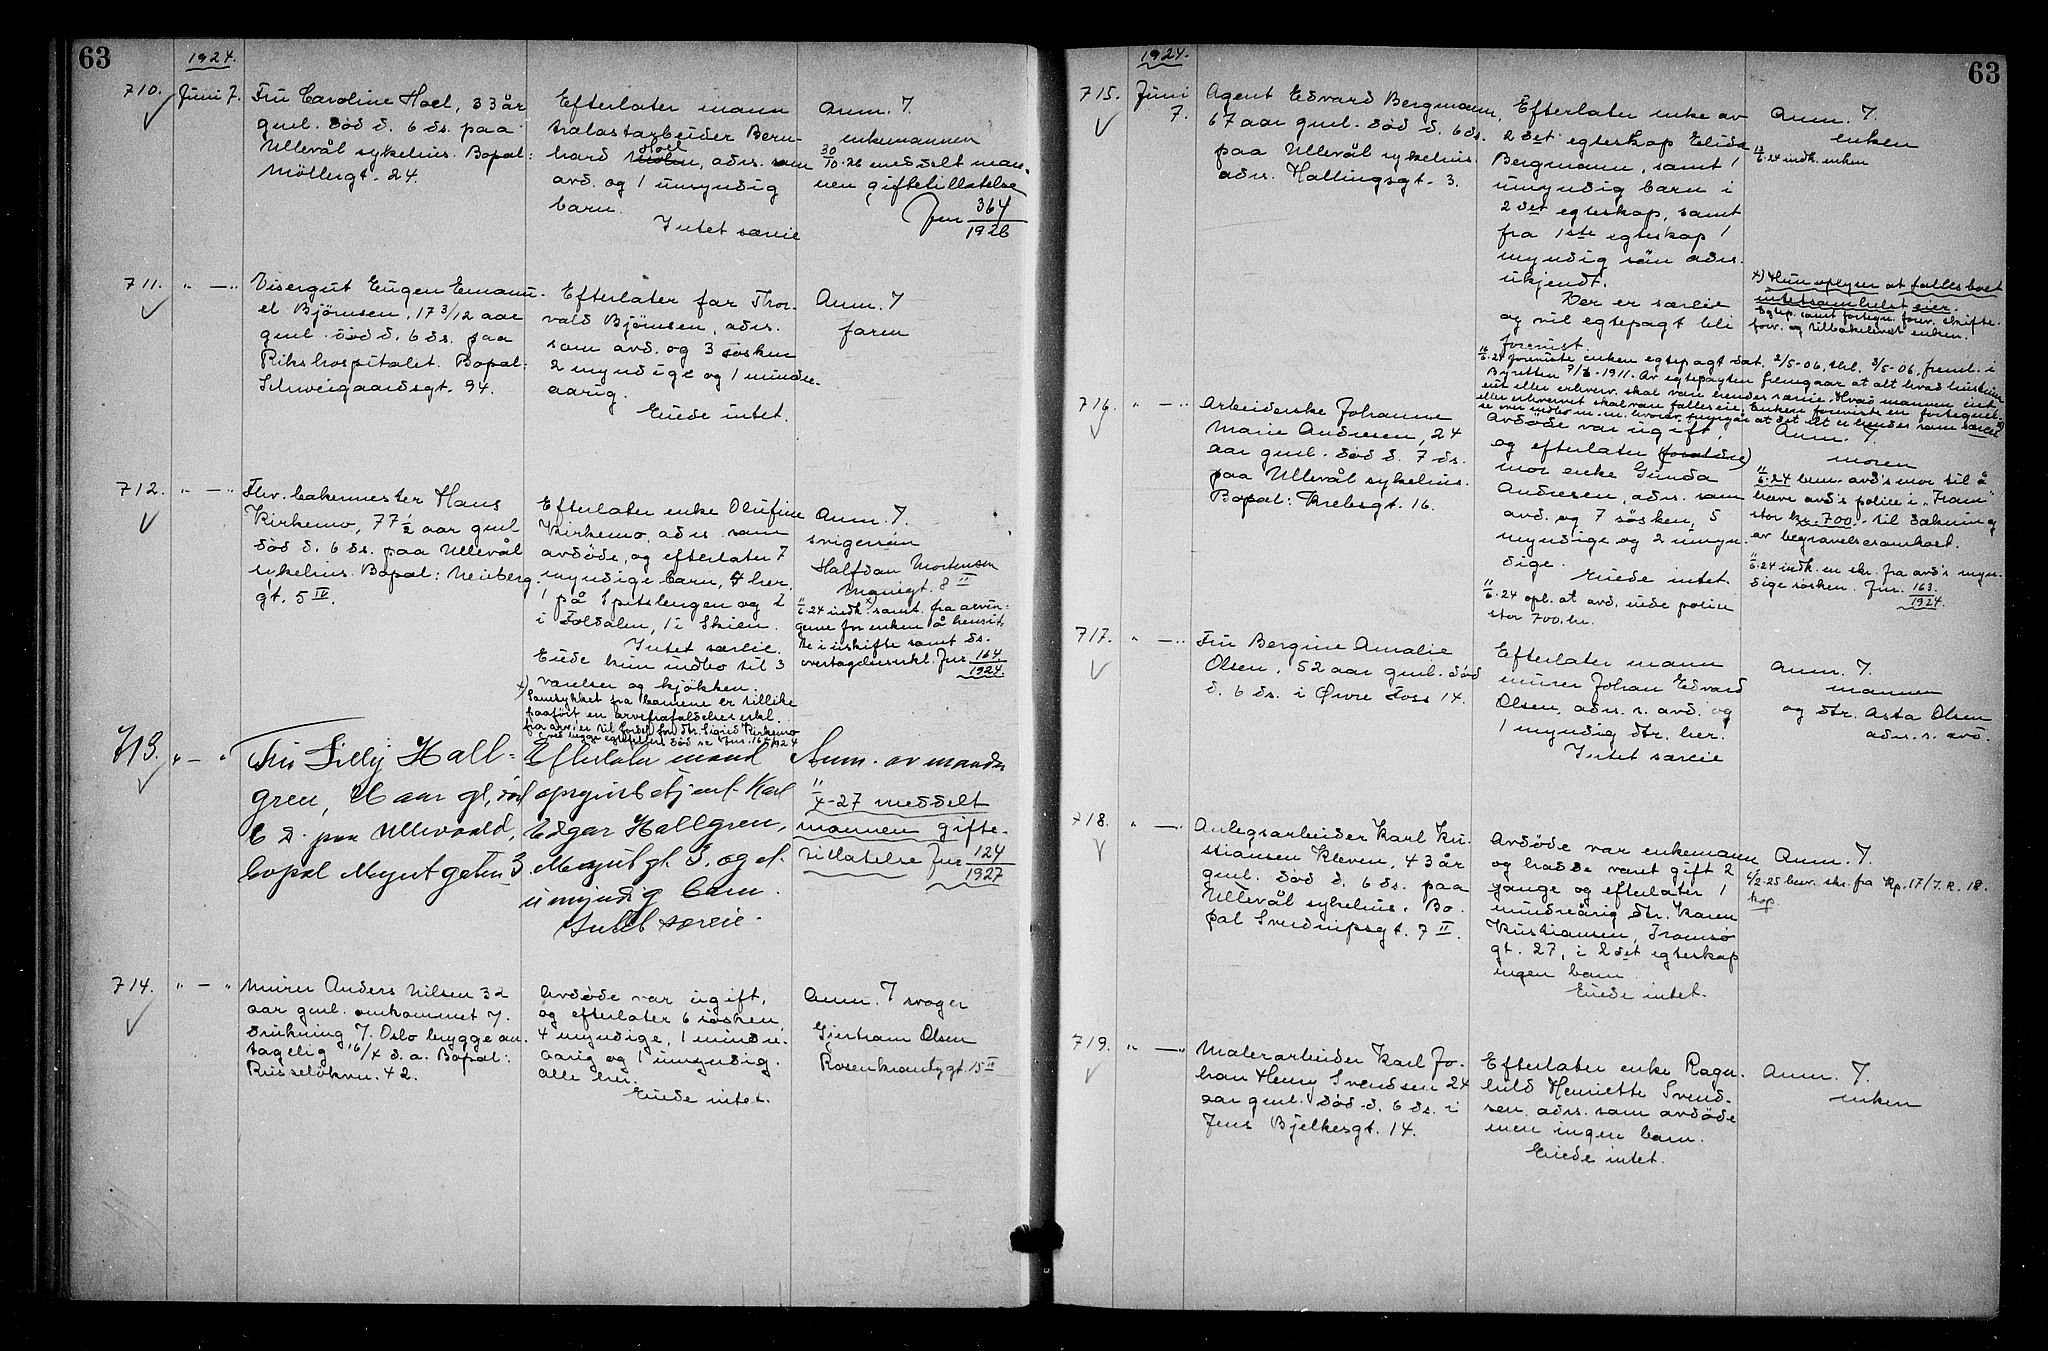 63
1924.
710.
Juni 7.
Fru Caroline Hoel, 33 år
gml. død d. 6 ds. paa
Ullevål sykehus. Bopæl:
Möllergt. 24.
Efterlater mann
trælastarbeider Bern-
hard Hoel, adrs. som
avd. og 1 umyndig
barn.
Intet særeie
Anm. 7
enkemannen
30/10-26 meddelt man-
nen giftetillatelse
Jnr 364/1926
711.
" — "
Visergut Eugen Emanu-
el Bjørnsen, 17 3/12 aar
gml. død d. 6 ds. paa
Rikshospitalet. Bopæl:
Schweigaardsgt. 94.
Efterlater far Thor-
vald Bjørnsen, adrs.
som avd. og 3 søsken
2 myndige og 1 mindre-
aarig.
Eiede intet.
Anm. 7
faren
712.
" — "
Fhv. bakermester Hans
Kirkemo, 77 1/2 aar gml
død d. 6 ds. paa Ullevål
sykehus. Bopæl: Neuberg.
gt. 5 IV.
Efterlater enke Olufine
Kirkemo, adrs. som
avdøde, og efterlater 7
myndige barn, 4 her,
1 på Spitsbergen og 1
i Foldalen, 1 i Skien.
Intet særeie.
Eiede kun indbo til 3
værelser og kjøkken.
x) Samtykket fra barnene er tillike
paaført en arvefrafaldelseserkl.
Anm. 7.
svigersøn
Halfdan Mortensen
8 II
11/6-24 indk. x) samt fra arvin-
gene for enken å hensit-
te i uskifte samt ds.
overtagelseserkl. Jnr 164/1924
713.
" — "
Fru Lilly Hall-
gren, 26 aar gl, død
6 d. paa Ullevaald,
bopæl Myntgaten 3.
Efterlater mand
opsynsbetjent Karl
Edgar Hallgren,
Myntgt 3. og et
umyndig barn.
Intet særeie.
Anm. av manden
11/4-27 meddelt
mannen gifte-
tillatelse Jnr 124/1927
714.
" — "
Murer Anders Nilsen 32
aar gml. omkommet v.
drukning v. Oslo brygge an-
tagelig 16/4 d. a. Bopæl:
Russeløkvn. 42.
Avdøde var ugift,
og efterlater 6 søsken,
4 myndige, 1 mindre-
aarig og 1 umyndig.
alle her.
Eiede intet.
Anm. 7 svoger
Gjertram Olsen
Rosenkrantzgt 15 II
63
1924.
715.
Juni
7.
Agent Edvard Bergmann,
67 aar gml. død d. 6 ds.
paa Ullevål sykehus.
adrs. Hallingsgt. 3.
Efterlater enke av
2det egteskap Elida
Bergmann, samt 1
umyndig barn i
2det egteskap, samt
fra 1ste egteskap 1
myndig søn adrs.
ukjendt.
Der er særeie
og vil egtepagt bli
forevist.
11/6-24 foreviste enken egtepagt dat. 2/5-06, thl. 3/5-06, freml. i
Byretten 1911. Av egtepagten fremgaar at alt hvad hustruen
eier eller erhverv. skal være hendes særeie. Hvad mannen eier
eller erhvervet skal være fælleseie. Enken foreviste en fortegnel-
se over indbo m.m. hvorav fremgår at det alt er hendes som særeie x)
Anm. 7.
enken
12/6-24 indk. enken
x) Hun oplyser at fællesboet
intetsomhelst eier.
Egtep. samt fortegn. forev. skifte-
forv. og tilbakelevert enken.
716.
" — "
Arbeiderske Johanne
Marie Andresen, 24
aar gml. død d. 7 ds.
paa Ullevål sykehus.
Bopæl: Krebsgt. 16.
Avdøde var ugift,
og efterlater (forældre)
mor enke Gunda
Andresen, adrs. som
avd. og 7 søsken, 5
myndige og 2 umyn-
dige.
Eiede intet.
11/6-24 opl. at avd. eide police
stor 700 kr.
Anm. 7.
moren
11/6-24 bem. avd's mor til å
hæve avd's police i "Fram"
stor kr. 700.- til dækning
av begravelsesomkost.
11/6-24 indk. en skr. fra avd's myn-
dige søsken. Jnr. 163/1924.
717.
" — "
Fru Bergine Amalie
Olsen, 52 aar gml. død
d. 6 ds. i Øvre Foss 14.
Efterlater mann
murer Johan Edvard
Olsen, adrs. s. avd. og
1 myndig dtr. her.
Intet særeie
Anm. 7.
mannen
og dtr. Asta Olsen
adrs. s. avd.
718.
" — "
Anlegsarbeider Karl Kri-
stiansen Kleven, 43 år
gml. død d. 6 ds. paa
Ullevål sykehus. Bo-
pæl Sverdrupsgt. 7 II.
Avdøde var enkemann
og hadde været gift 2
gange og efterlater 1
mindreårig dtr. Karen
Kristiansen, Tromsø
gt. 27, i 2det egteskap
ingen barn.
Eiede intet.
Anm. 7.
6/2-25 besv. skr. fra Rp. 17/7. R. 18.
kop
719.
" — "
Malerarbeider Karl Jo-
han Henry Svendsen 24
aar gml. død d. 6 ds. i
Jens Bjelkesgt. 14.
Efterlater enke Ragn-
hild Henriette Svend-
sen. adrs. som avdøde
men ingen barn.
Eiede intet.
Anm. 7.
enken